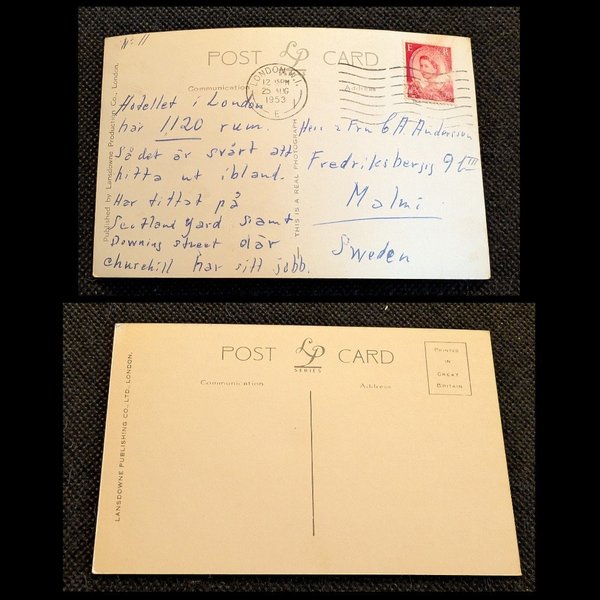 No 11
POST LP CARD
Communication
Address
LONDON. W.1.
12 15PM
25 AUG
1953
E
E R
Published by Lansdowne Production Co., London.
THIS IS A REAL PHOTOGRAPH
Hotellet i London
har 1120 rum.
Så det är svårt att
hitta ut ibland.
Har tittat på
Scotland Yard samt
Downing street där
churchill har sitt jobb.
Herr o Fru C A Andersson
Fredriksbergsg 9
Malmö
Sweden
POST LP CARD
SERIES
Communication
Address
PRINTED
IN
GREAT
BRITAIN
LANSDOWNE PUBLISHING CO., LTD., LONDON.